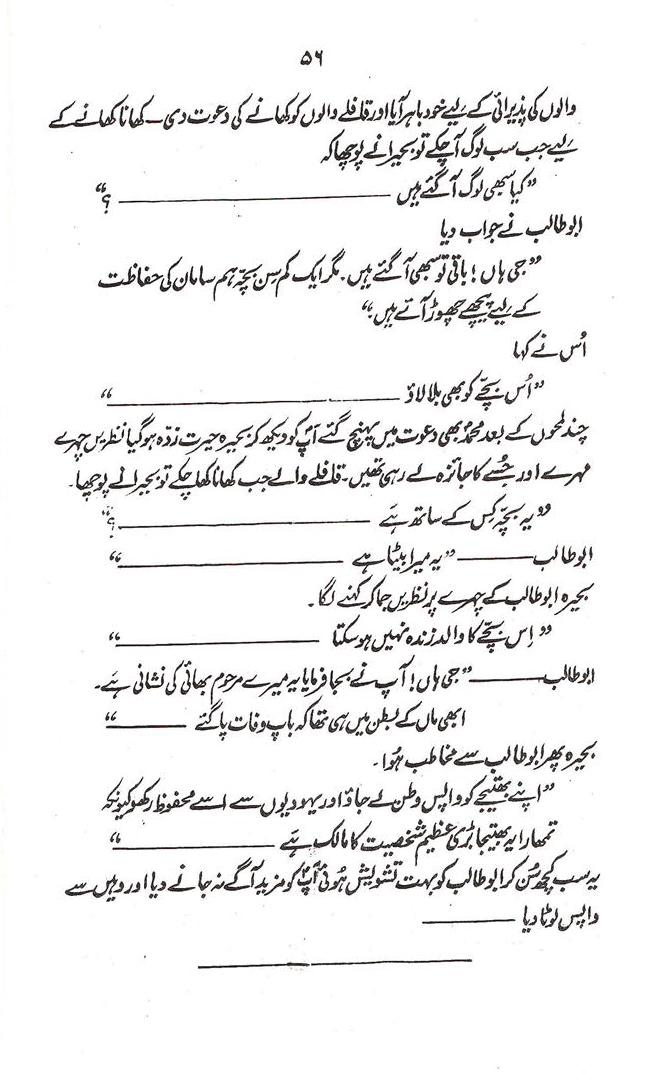 ۵۶
والوں کی پذیرائی کے لیے خود باہر آیا اور قافلے والوں کو کھانے کی دعوت دی – کھانا کھانے کے
لیے جب سب لوگ آ چکے تو بحیرا نے پوچھا کہ
”کیا سبھی لوگ آ گئے ہیں ———؟“
ابو طالب نے جواب دیا
”جی ہاں! باقی تو سبھی آ گئے ہیں۔ مگر ایک کم سِن بچّہ ہم سامان کی حفاظت
کے لیے پیچھے چھوڑ آئے ہیں“
اُس نے کہا
”اُس بچّے کو بھی بلا لاؤ ———“
چند لمحوں کے بعد محمدؐ بھی دعوت میں پہنچ گئے آپؐ کو دیکھ کر بحیرہ حیرت زدہ ہو گیا نظریں چہرے
مہرے اور جُسے کا جائزہ لے رہی تھیں۔ قافلے والے جب کھانا کھا چکے تو بحیرا نے پوچھا۔
”یہ بچّہ کِس کے ساتھ ہَے ———؟“
ابو طالب ——— ”یہ میرا بیٹا ہے ———“
بحیرہ ابو طالب کے چہرے پر نظریں جما کر کہنے لگا۔
”اِس بچّے کا والد زندہ نہیں ہو سکتا ———“
ابو طالب ——— ”جی ہاں! آپ نے بجا فرمایا یہ میرے مرحوم بھائی کی نشانی ہَے۔
ابھی ماں کے بطن میں ہی تھا کہ باپ وفات پا گئے ———“
بحیرہ پھر ابو طالب سے مخاطب ہُوا۔
”اپنے بھتیجے کو واپس وطن لے جاؤ اور یہودیوں سے اسے محفوظ رکھو کیونکہ
تمھارا یہ بھتیجا بڑی عظیم شخصیت کا مالک ہَے ———“
یہ سب کچھ سُن کر ابو طالب کو بہت تشویش ہُوئی آپؐ کو مزید آگے نہ جانے دیا اور وہیں سے
واپس لوٹا دیا ———